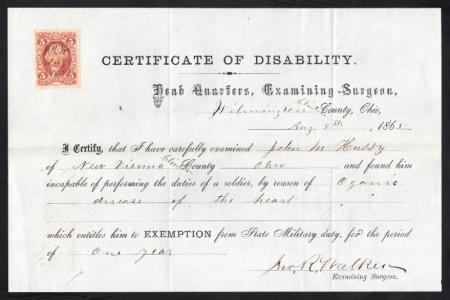 CERTIFICATE OF DISABILITY.
Head Quarters, Examining-Surgeon,
Wilmington Clin County, Ohio,
Aug 8th, 1865
I Certify, that I have carefully examined John M Hussy
of New Vienna Clin County Ohio and found him
incapable of performing the duties of a soldier, by reason of Oganic
disease of the heart
which entitles him to EXEMPTION from State Military duty, for the period
of One year
Jno. R. Walker
Examining Surgeon.